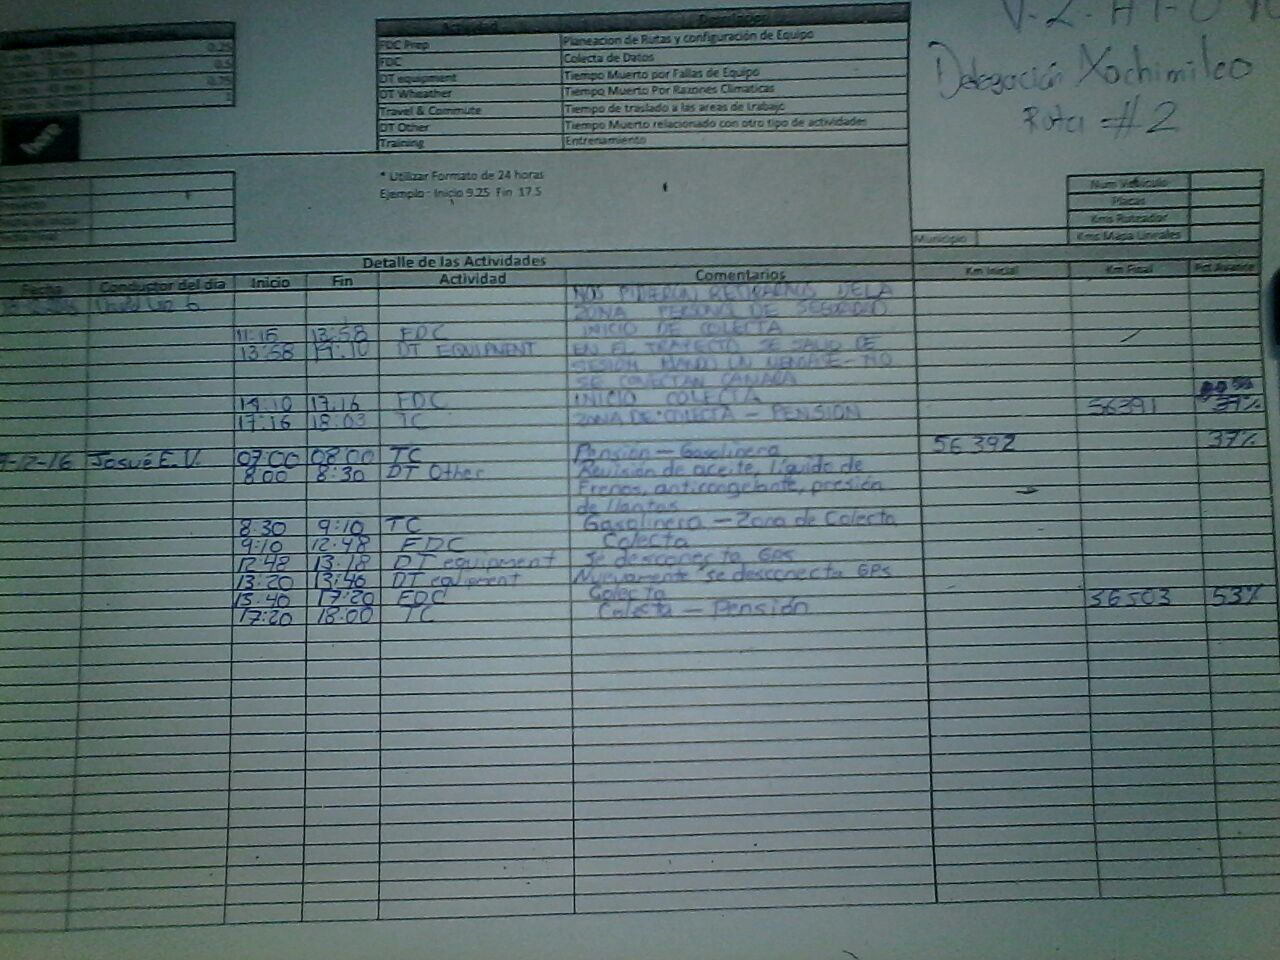 V-2-
Delegación Xochimilco
Ruta #2
0.25
0.5
0.75
Actividad Descripcion
FDC Prep Planeacion de Rutas y configuración de Equipo
FDC Colecta de Datos
DT equipment Tiempo Muerto por Fallas de Equipo
DT Wheather Tiempo Muerto Por Razones Climaticas
Travel & Commute Tiempo de traslado a las areas de trabajo
DT Other Tiempo Muerto relacionado con otro tipo de actividades
Training Entrenamiento
* Utilizar Formato de 24 horas
Ejemplo : Inicio 9.25 Fin 17.5
Num Vehiculo
Placas
Kms Ruteador
Municipio Kms Mapa Lineales
Detalle de las Actividades
Conductor del día Inicio Fin Actividad Comentarios Km Inicial Km Final Pct Avance
NOS PIDIERON RETIRARNOS DE LA
ZONA PERSONAL DE SEGURIDAD
11:15 13:58 FDC INICIO DE COLECTA
13:58 DT EQUIPMENT EN EL TRAYECTO SE SALIO DE
SESION MANDO UN MENSAJE - NO
SE CONECTAN CAMARA
14:10 17:16 FDC INICIO COLECTA
17:16 18:03 TC ZONA DE COLECTA - PENSION 56391 37%
-12-16 Josué E.V. 07:00 08:00 TC Pensión - Gasolinera 56 392 37%
8:00 8:30 DT Other Revisión de aceite, líquido de
Frenos, anticongelante, presión
de llantas
8:30 9:10 TC Gasolinera - Zona de Colecta
9:10 12:48 FDC Colecta
12:48 13:18 DT equipment Se desconecta GPS
13:20 13:40 DT equipment Nuevamente se desconecta GPS
13:40 17:20 FDC Colecta 56503 53%
17:20 18:00 TC Colecta - Pensión